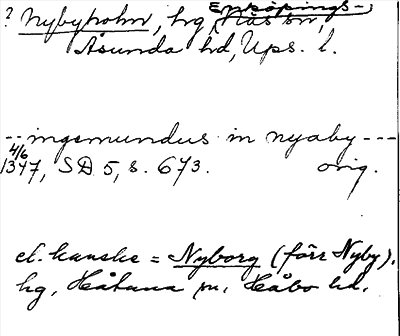 ? Nybyholm, hg, Enköpings-Näs sn,
Åsunda hd, Ups. l.
-- ingemundus in nyaby ---
4/6
1347, SD 5, s. 673. orig.
el. kanske = Nyborg (förr Nyby),
hg, Håtuna sn, Håbo hd.